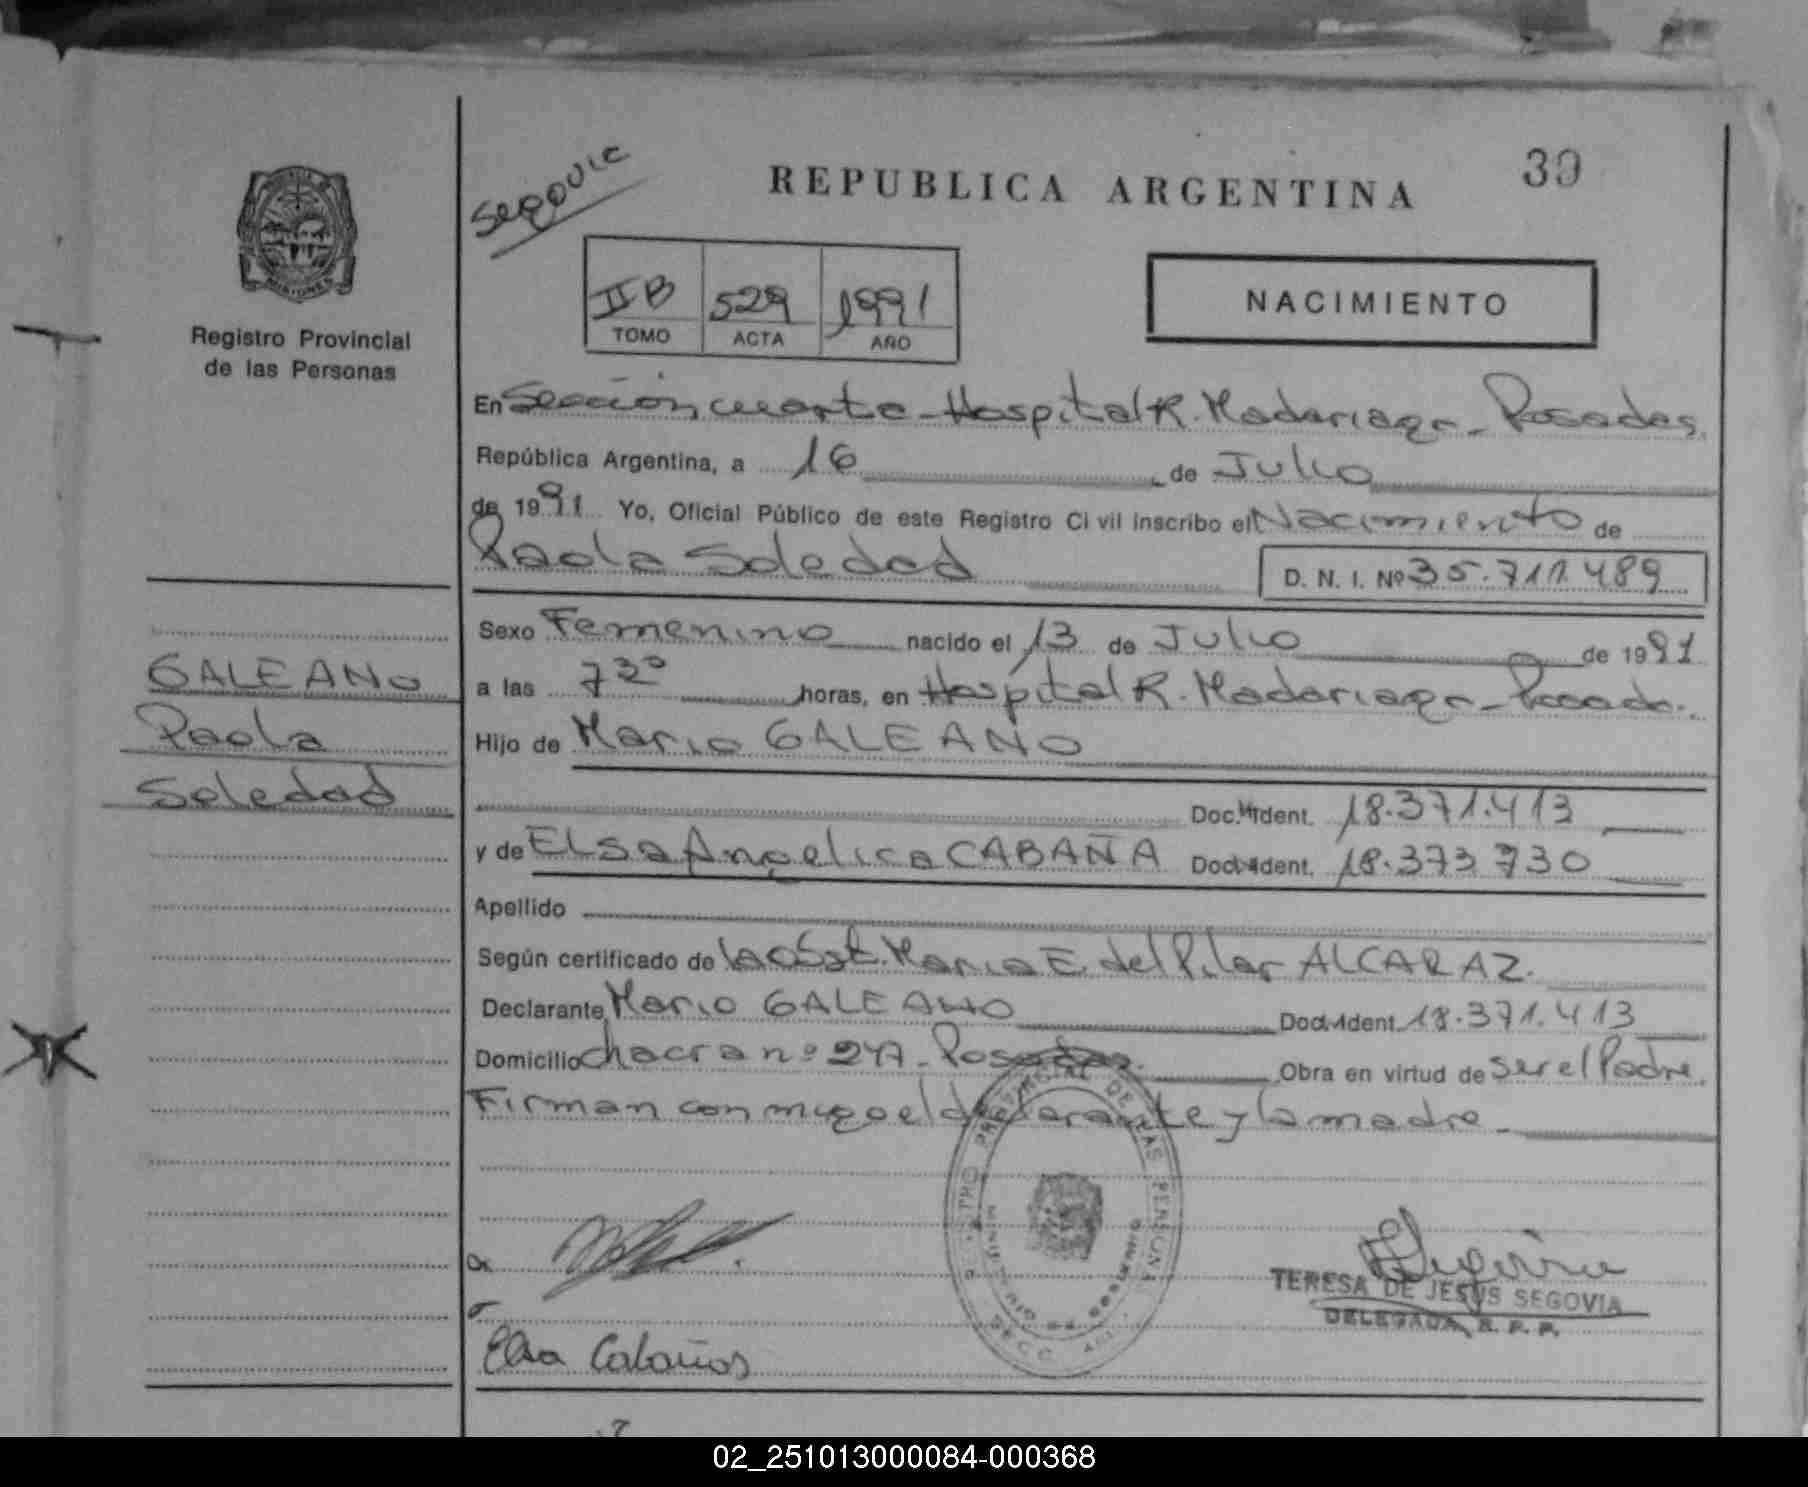 39
Segovia
REPUBLICA ARGENTINA
MISIONES
Registro Provincial
de las Personas
II B 529 1991
TOMO ACTA AÑO
NACIMIENTO
En Sección cuarta - Hospital R. Madariaga - Posadas.
República Argentina, a 16 de Julio
de 1991 Yo, Oficial Público de este Registro Civil inscribo el Nacimiento de
Paola Soledad D. N. I. Nº 35.711.489
Sexo Femenino nacido el 13 de Julio de 1991
a las 7 30 horas, en Hospital R. Madariaga - Posadas.
Hijo de Mario GALEANO
Doc. Ident. 18.371.413
y de ELSA Angelica CABAÑA Doc. Ident. 18.373.730
Apellido
Según certificado de la Obst. Maria E. del Pilar ALCARAZ.
Declarante Mario GALEANO Doc. Ident. 18.371.413
Domicilio chacra nº 247 - Posadas. Obra en virtud de ser el Padre.
Firman conmigo el declarante y la madre
GALEANO
Paola
Soledad
REGISTRO PROVINCIAL DE LAS PERSONAS
MINISTERIO DE GOBIERNO
TERESA DE JESUS SEGOVIA
DELEGADA R. P. P.
Elsa Cabañas
02_251013000084-000368